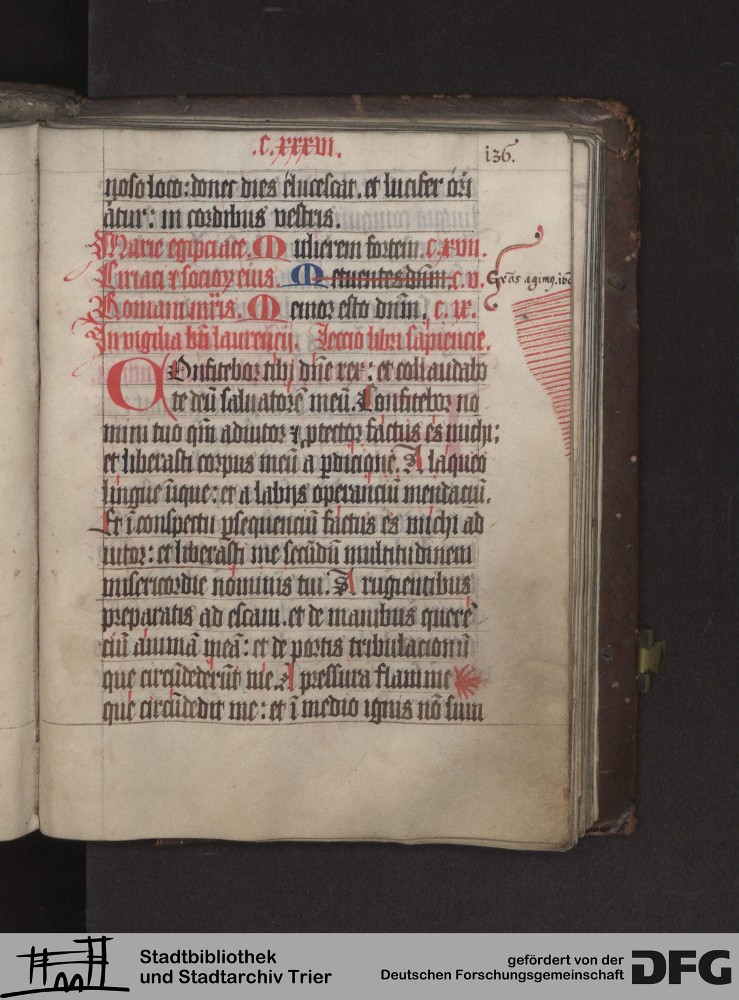 .C.xxxvi.
136.
noso loco: donec dies elucescat. et lucifer ori
atur: in cordibus vestris.
Marie egipciace. Mulierem fortem. c.xvii.
Ciriaci et socioꝝ eius. Metuentes dn̄m. c. v.
Gr̄as agimꝰ. 160
Romani mr̄is. Memor esto dn̄m. c. ix.
In vigilia bt̄i laurencij. Leccio libri sapiencie.
COnfitebor tibi dn̄e rex: et collaudabo
te deū saluatorē meū. Confitebor no
mini tuo qm̄ adiutor et ꝓtector factus es michi;
et liberasti corpus meū a ꝑdicione. A laqueo
lingue inique: et a labijs operanciū mendaciū.
Et ī conspectu ꝑsequenciū factus es michi ad
iutor: et liberasti me secūdū multitudinem
misericordie nominis tui. A rugientibus
preparatis ad escam. et de manibus querē
ciū animā meā: et de portis tribulacionū
que circūdederūt me. A pressura flamme
que circūdedit me: et ī medio ignis nō sum
Stadtbibliothek
und Stadtarchiv Trier
gefördert von der
Deutschen Forschungsgemeinschaft
DFG